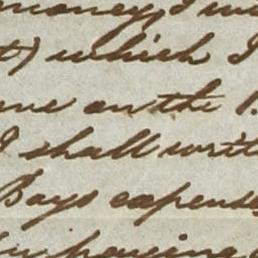 money, I w
t) which I
me on the 1.
I shall writ
Boys expense
by paying